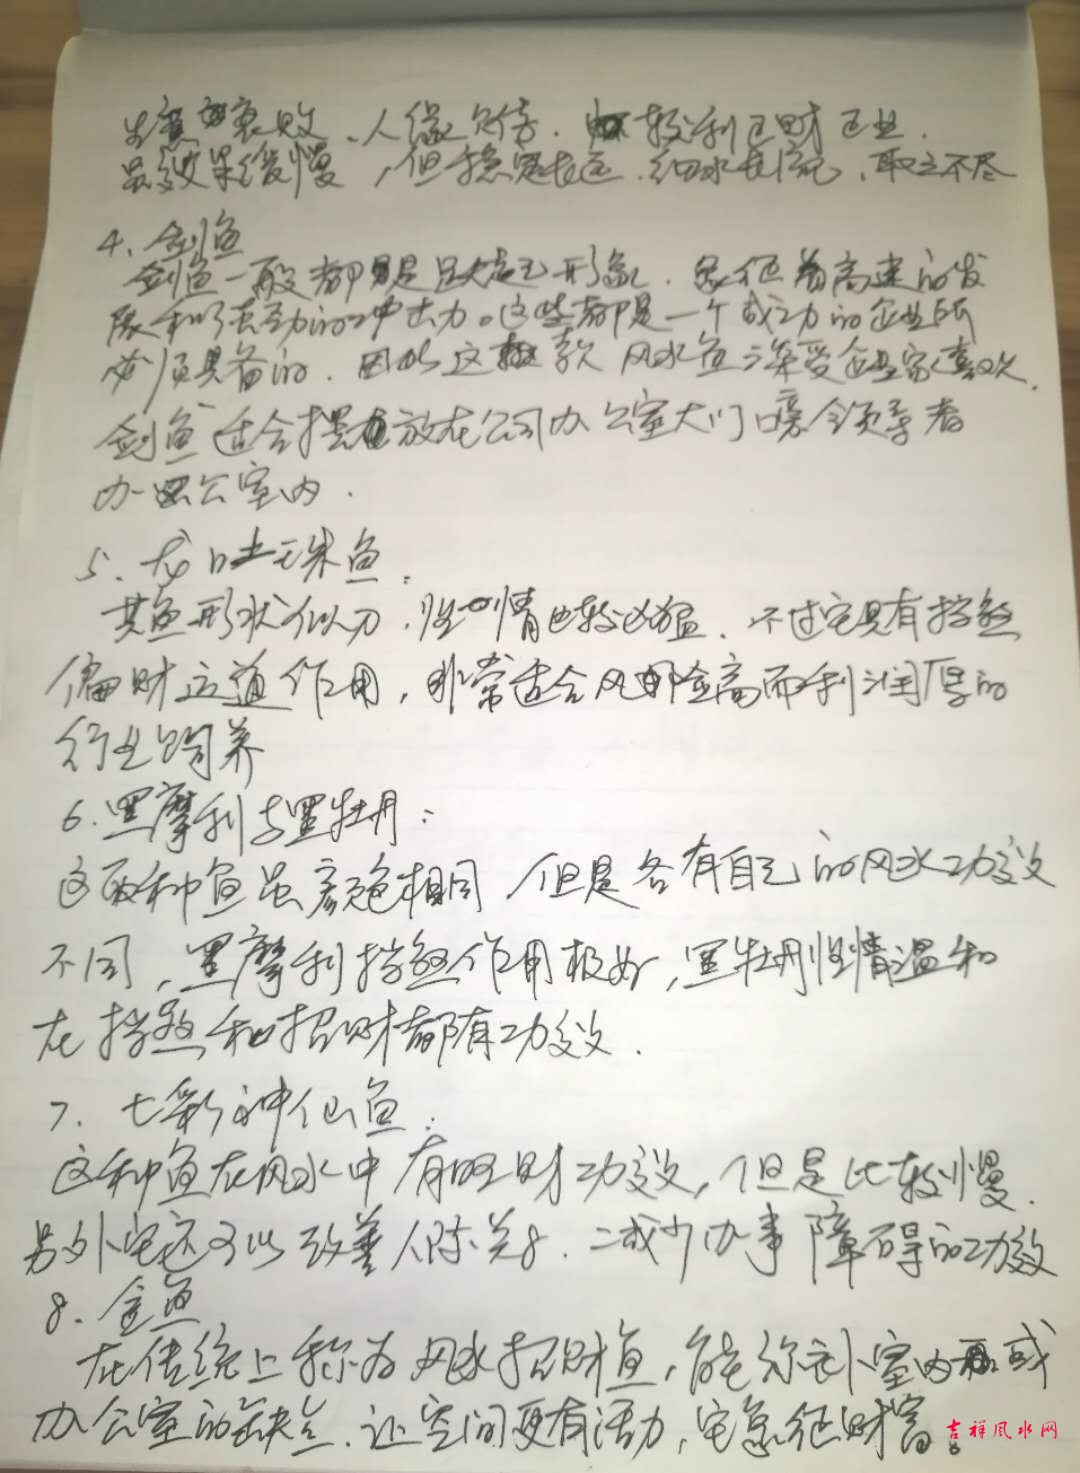 生意衰败、人缘欠佳.较利正财正业.
虽效果缓慢,但稳定长远.细水长流、取之不尽
4、剑鱼
剑鱼一般都是昂大起形象.象征着高速的发
展和强劲的冲击力。这些都是一个成功的企业所
必须具备的.因此这款风水鱼深受企业家喜欢.
剑鱼适合摆放在公司办公室大门口旁领导者
办公室内.
5、龙吐珠鱼:
其鱼形状似刀.性情也较凶猛.不过它具有挡煞
偏财运道作用,非常适合风险高而利润厚的
行业饲养
6.黑摩利与黑牡丹:
这两种鱼虽颜色相同但是各有自己的风水功效
不同,黑摩利挡煞作用极好,黑牡丹性情温和
在挡煞和招财都有功效.
7、七彩神仙鱼:
这种鱼在风水中有旺财功效,但是比较慢.
另外它还可以改善人际关系.减少办事障碍的功效
8、金鱼
在传统上称为风水招财鱼,能弥补室内或
办公室的缺点.让空间更有活力,它象征财富。
吉祥风水网